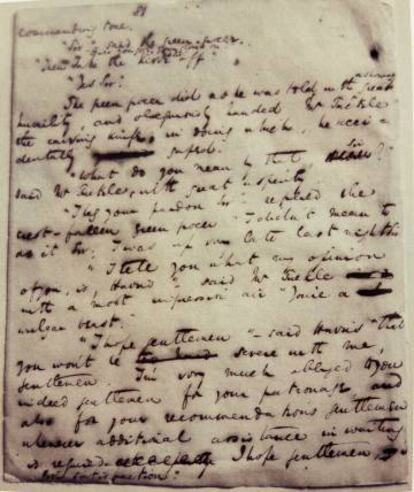 commanding tone.
"Sir" said the green-grocer.
take the kiver off"
"Yes Sir."
The green grocer did as he was told with
humility, and obsequiously handed Mr Tuckle
the carving knife; in doing which, he acci-
dentally
"What do you mean by that Sir?"
said Mr Tuckle, with great asperity
"I beg your pardon Sir" replied the
crest-fallen green grocer "I didn't mean to
do it Sir; I was up very late last night Sir
"I tell you what my opinion
of you, is, Harris" said Mr Tuckle
with a most impressive air "You're a
vulgar beast."
"I hope gentlemen" - said Harris "that
you won't be severe with me,
gentlemen. I'm very much obliged to you
indeed gentlemen for your patronage and
also for your recommendations gentlemen
whenever additional assistance in waiting
is required. I hope gentlemen, I
give satisfaction?